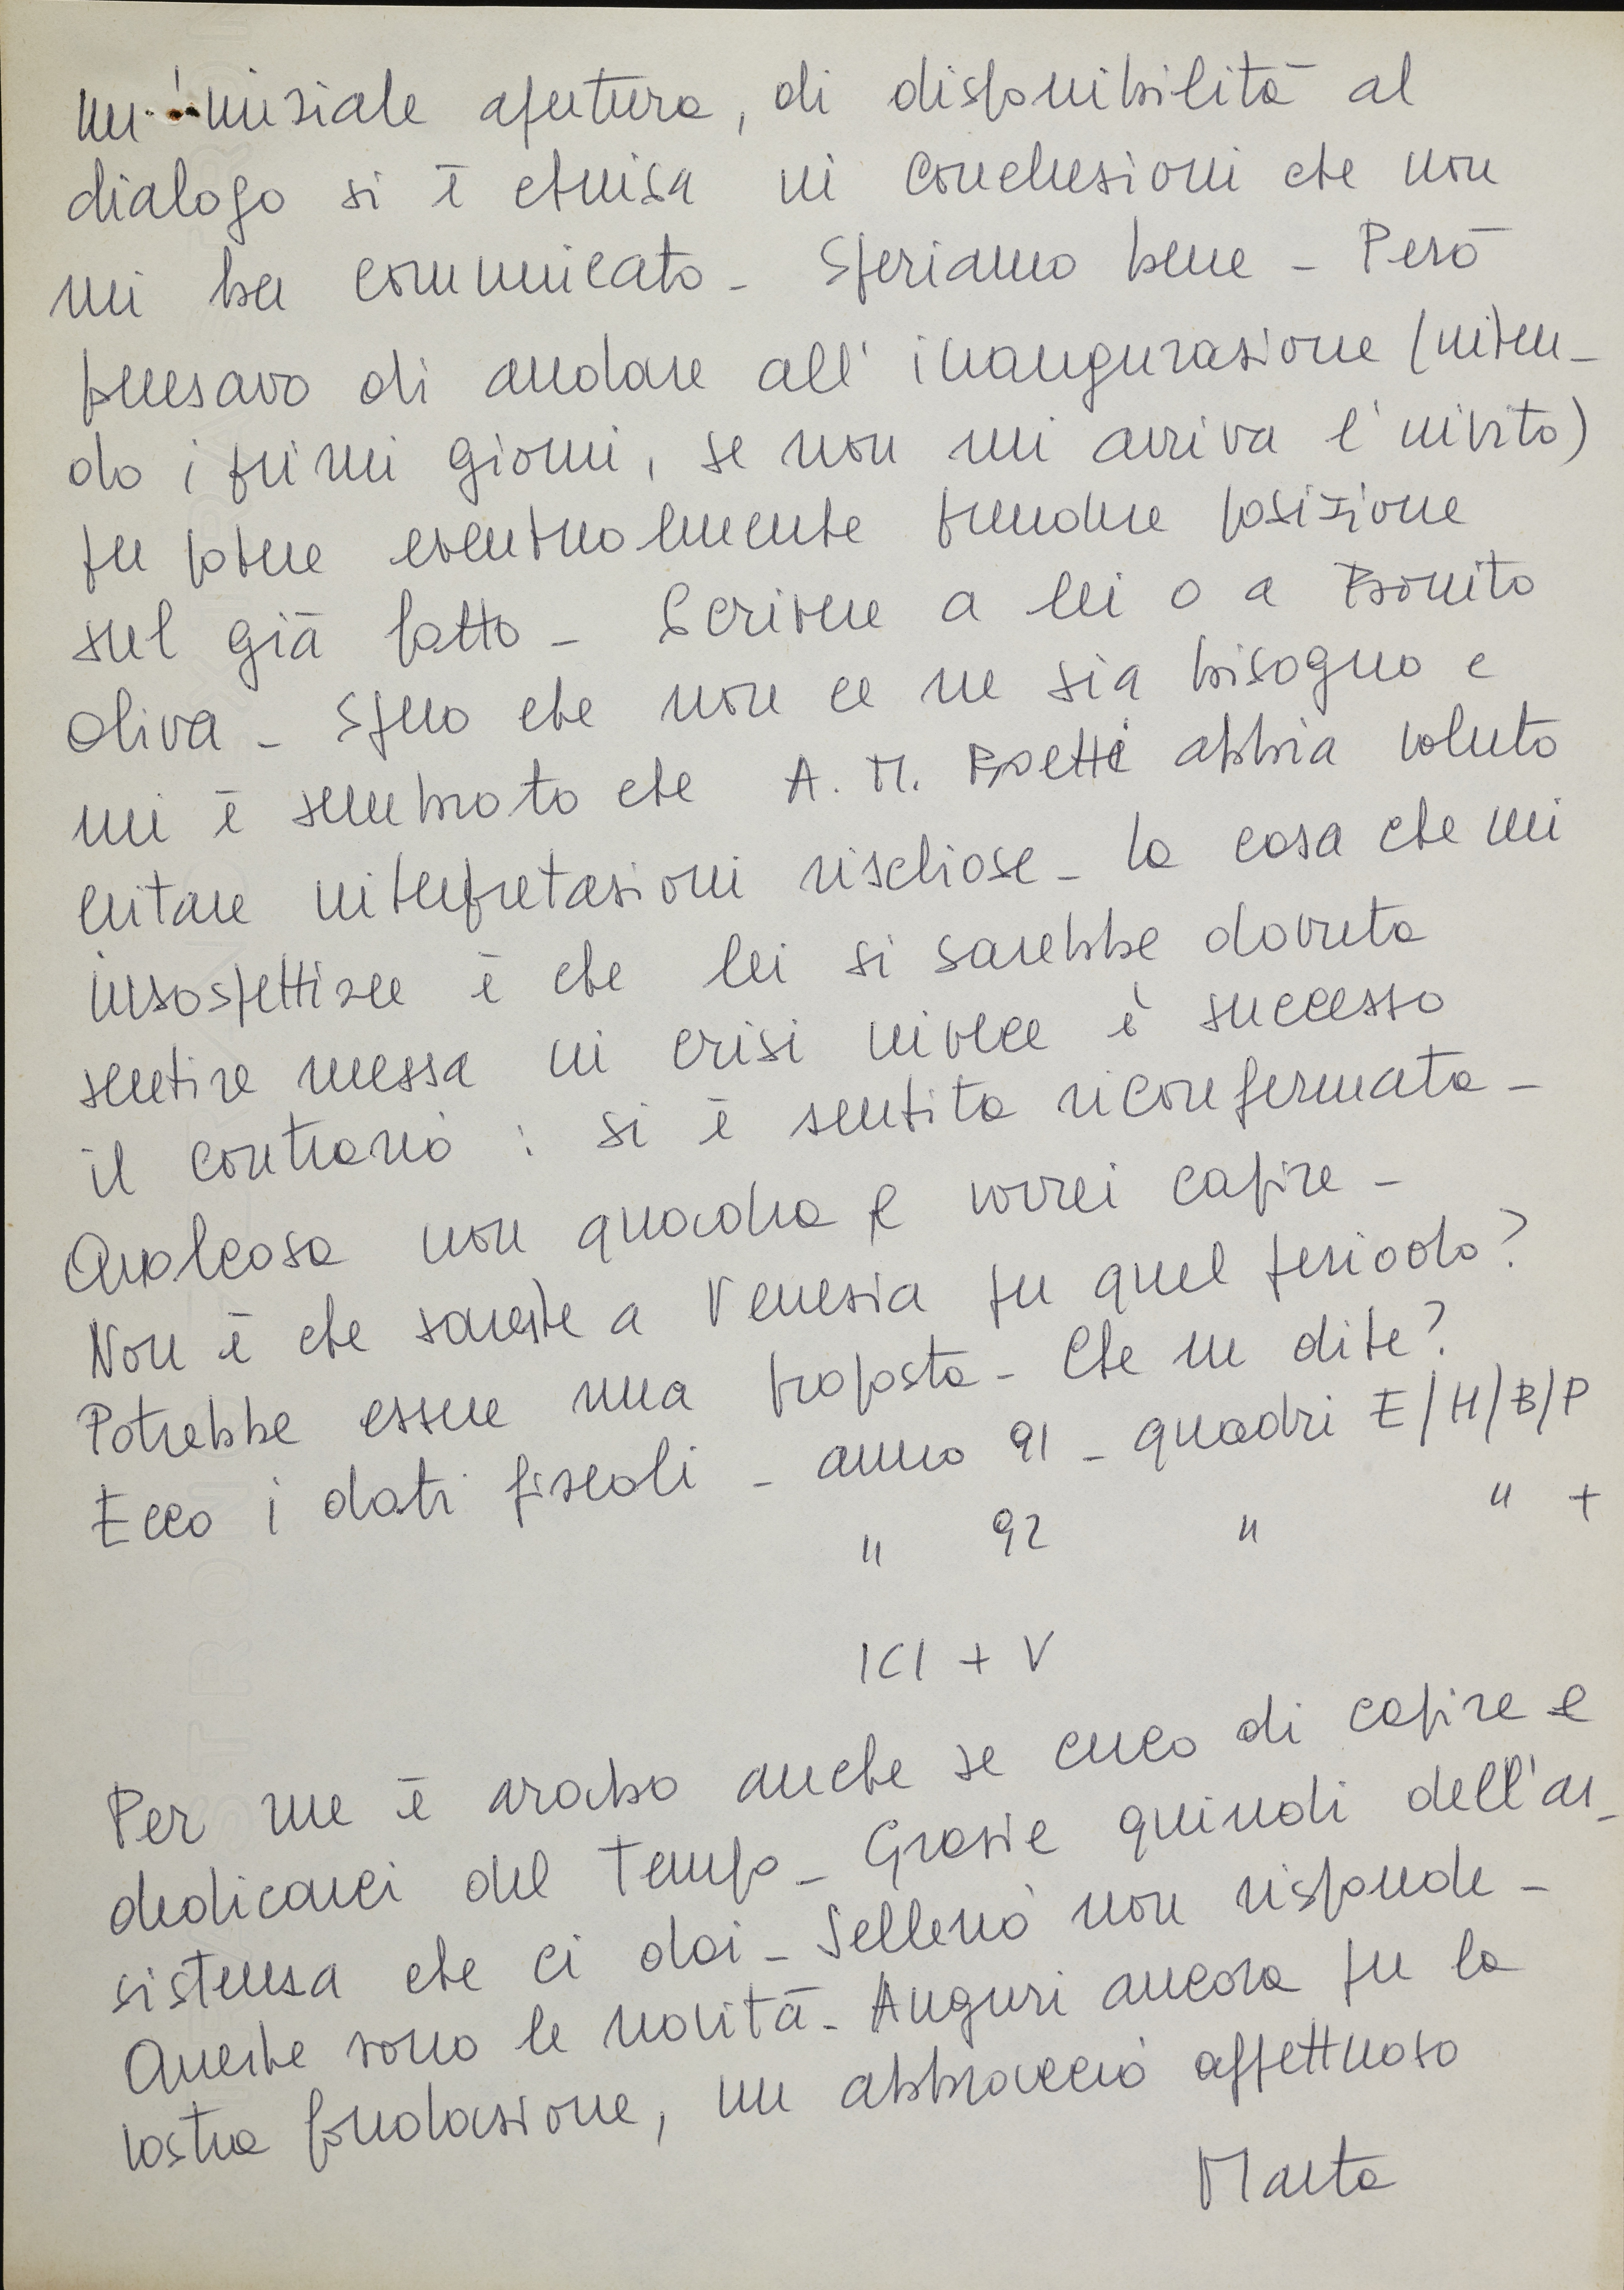 un'iniziale apertura, di disponibilità al
dialogo si è chiusa in conclusioni che non
mi ha comunicato - Speriamo bene - Però
pensavo di andare all'inaugurazione (inten-
do i primi giorni, se non mi arriva l'invito)
per poter eventualmente prendere posizione
sul già fatto - Scrivere a lei o a Bonito
Oliva - Spero che non ce ne sia bisogno e
mi è sembrato che A. M. Boetti abbia voluto
evitare interpretazioni rischiose - La cosa che mi
insospettisce è che lei si sarebbe dovuta
sentire messa in crisi invece è successo
il contrario : si è sentita riconfermata -
Qualcosa non quadra e vorrei capire -
Non è che sareste a Venezia per quel periodo?
Potrebbe essere una proposta - Che ne dite?
Ecco i dati fiscali - anno 91 - quadri E/H/B/P
" 92 " " +
ICI + V
Per me è arabo anche se cerco di capire e
dedicarci del Tempo - Grazie quindi dell'as-
sistenza che ci dai - Sellerio non risponde -
Queste sono le novità - Auguri ancora per la
vostra fondazione, un abbraccio affettuoso
Marta